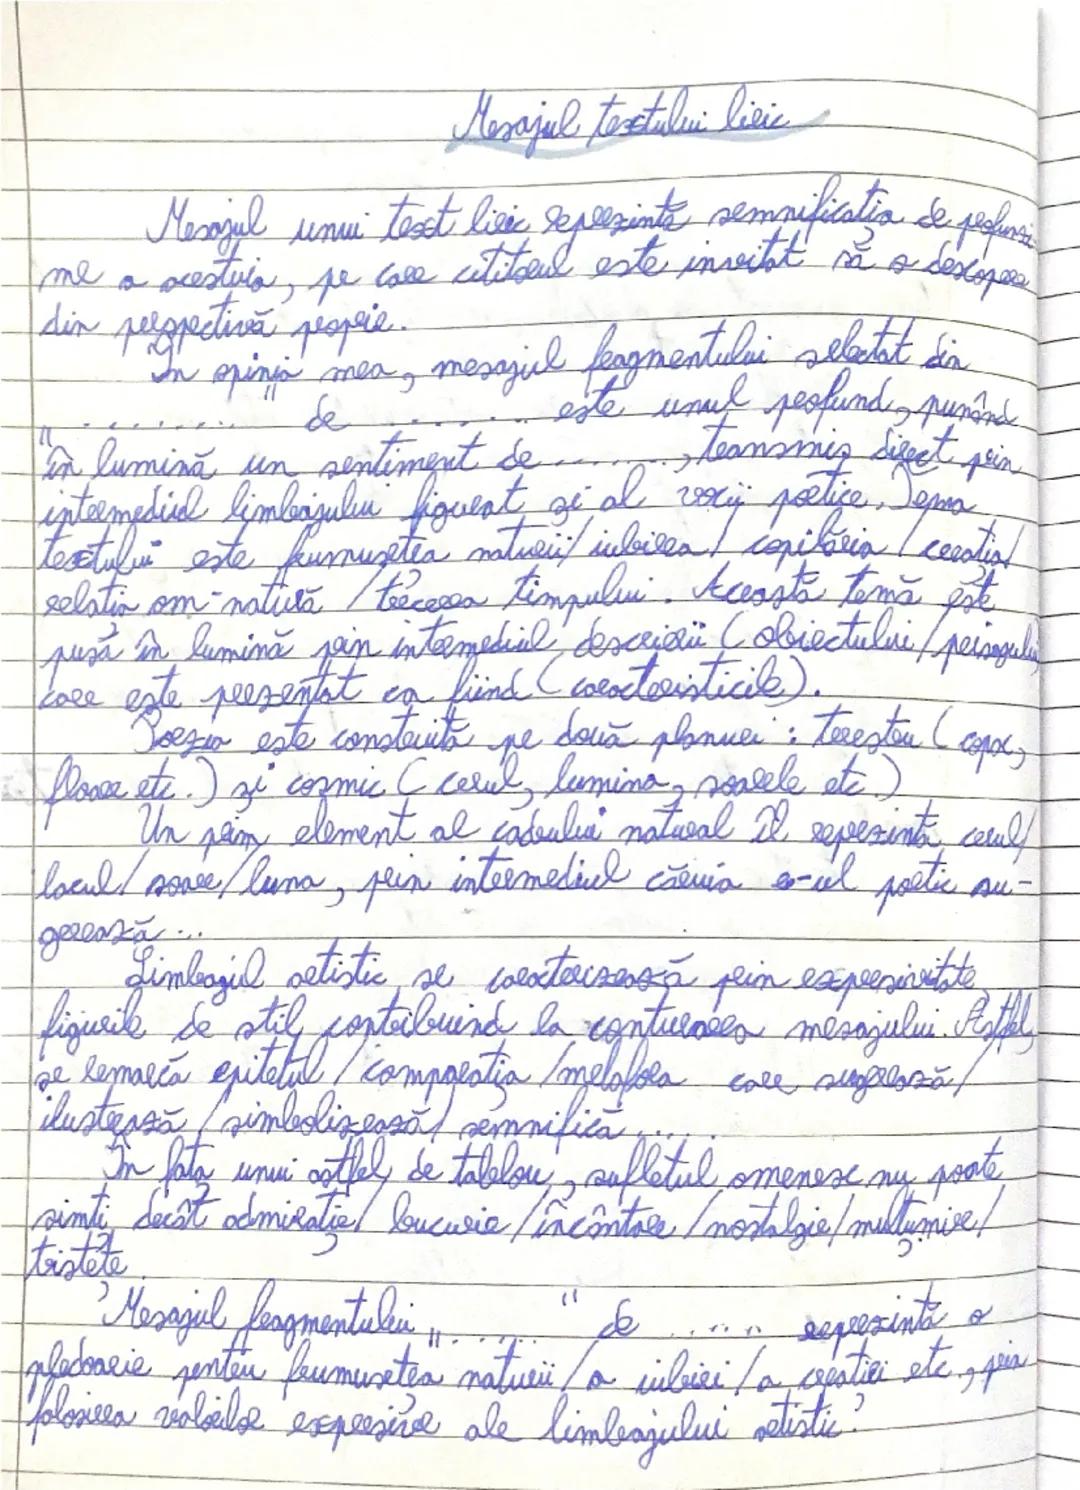 Mesajul textului liric
Mesajul unui text liric reprezintă semnificația de profunzi-
me a acestuia, pe care cititorul este invitat să o descopere
din perspectivă proprie.
În opinia mea, mesajul fragmentului selectat din
„..........." de .......... este unul profund, punând
în lumină un sentiment de ........, transmis direct prin
intermediul limbajului figurat și al vocii poetice. Tema
textului este frumusețea naturii/ iubirea / copilăria / creația/
relația om-natură / trecerea timpului. Această temă este
pusă în lumină prin intermediul descrierii (obiectului/peisajului)
care este prezentat ca fiind (caracteristicile).
Poezia este construită pe două planuri : terestru (copac,
floare etc.) și cosmic (cerul, lumina, soarele etc.)
Un prim element al cadrului natural îl reprezintă cerul/
lacul/ soare/ luna, prin intermediul căruia e-ul poetic su-
gerează ...
Limbajul artistic se caracterizează prin expresivitate,
figurile de stil contribuind la conturarea mesajului. Astfel,
se remarcă epitetul / comparația /metafora care sugerează/
ilustrează /simbolizează/ semnifică .....
În fața unui astfel de tablou, sufletul omenesc nu poate
simți decât admirație/ bucurie /încântare /nostalgie/ mulțumire/
tristețe.
Mesajul fragmentului „......" de ...... reprezintă o
pledoarie pentru frumusețea naturii/ a iubirii / a creației etc., prin
folosirea valorilor expresive ale limbajului artistic.